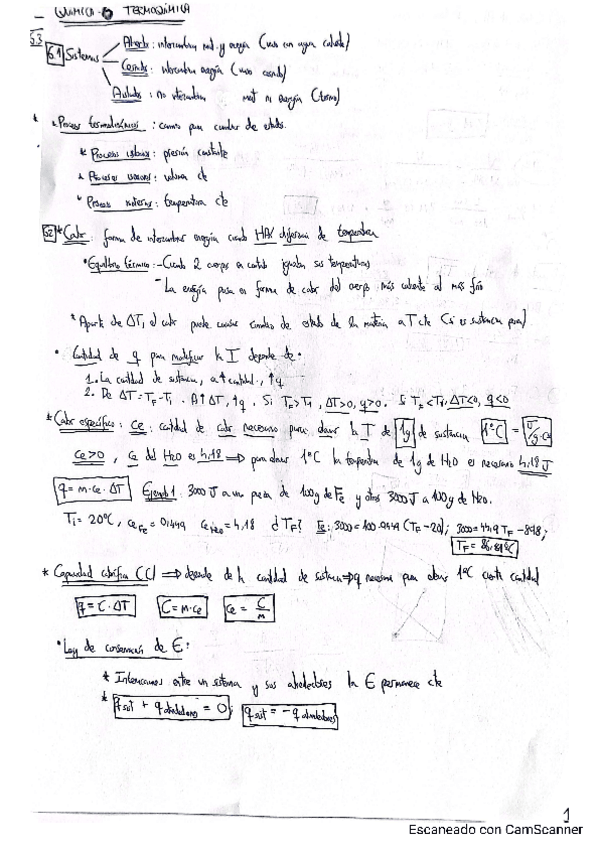 - QUIMICA - 6 TERMOQUÍMICA
6.1 Sistemas
Abiertos: intercambian mat. y energía (vaso con agua caliente)
Cerrados: intercambian energía (vaso cerrado)
Aislados: no intercambian mat ni energía (termo)
* Procesos termodinámicos: camino para cambiar de estado.
* Procesos isobaros: presión constante
* Procesos isocoros: volumen cte
* Procesos isotermos: temperatura cte
6.2 * Calor: forma de intercambiar energía cuando HAY diferencia de temperatura
• Equilibrio térmico: - Cuando 2 cuerpos en contacto igualan sus temperaturas
- La energía pasa en forma de calor del cuerpo más caliente al más frío
* Aparte de ΔT, el calor puede causar cambio de estado de la materia a T cte (si es sustancia pura)
• Cantidad de q para modificar la T depende de:
1. La cantidad de sustancia, a ↑ cantidad, ↑q
2. De ΔT = TF - Ti. A ↑ΔT, ↑q. Si TF > Ti, ΔT>0, q>0. Si TF < Ti, ΔT<0, q<0
* Calor específico: Ce: cantidad de calor necesario para elevar la T de 1g de sustancia 1°C = J/g·°C
Ce>0, Ce del H2O es 4,18 ⟹ para elevar 1°C la temperatura de 1g de H2O es necesario 4,18 J
q = m·ce·ΔT Ejemplo 1: 3000 J a una pieza de 100g de Fe y otros 3000 J a 100g de H2O.
Ti = 20°C, ceFe = 0,449 ceH2O = 4,18 ¿TF? Fe: 3000 = 100·0,449 (TF - 20); 3000 = 44,9 TF - 898;
TF = 86,81°C
* Capacidad calorífica (C) ⟹ depende de la cantidad de sustancia ⟹ q necesario para elevar 1°C cierta cantidad
q = C·ΔT C = m·ce ce = C/m
• Ley de conservación de E:
* Interacciones entre un sistema y sus alrededores la E permanece cte
* qsist + qalrededores = 0; qsist = - qalrededores
1
Escaneado con CamScanner